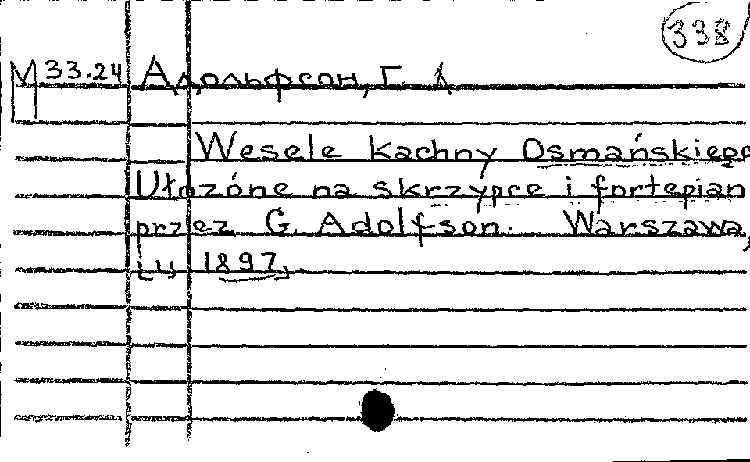 338
М 33.24 Адольфсон, Г.
Wesele Kachny Osmańskiego
Ułożone na skrzypce i fortepian
przez G. Adolfson. Warszawa,
1897